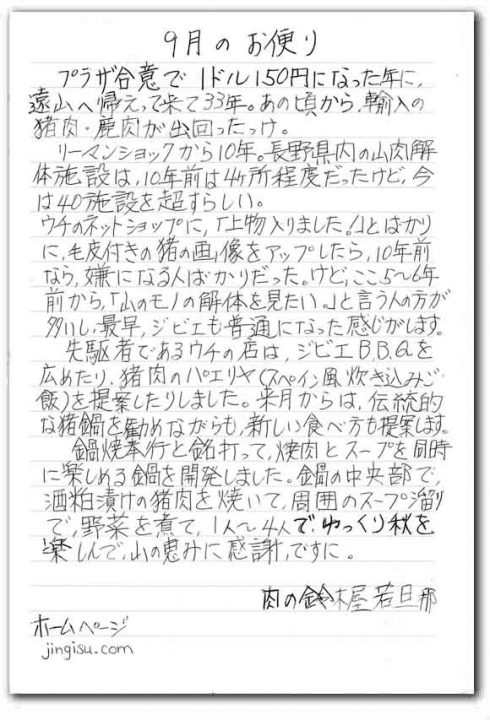 9月のお便り
プラザ合意で1ドル150円になった年に、
遠山へ帰えって来て33年。あの頃から、輸入の
猪肉・鹿肉が出回ったっけ。
リーマンショックから10年。長野県内の山肉解
体施設は、10年前は4ヶ所程度だったけど、今
は40施設を超すらしい。
ウチのネットショップに、「上物入りました。」とばかり
に、毛皮付きの猪の画像をアップしたら、10年前
なら、嫌になる人ばかりだった。けど、ここ5〜6年
前から、「山のモノの解体を見たい。」と言う人の方が
多いし、最早、ジビエも普通になった感じがします。
先駆者であるウチの店は、ジビエB.B.Qを
広めたり、猪肉のパエリヤ(スペイン風炊き込みご
飯)を提案したりしました。来月からは、伝統的
な猪鍋を勧めながらも、新しい食べ方も提案します。
鍋焼奉行と銘打って、焼肉とスープを同時
に楽しめる鍋を開発しました。鍋の中央部で、
酒粕漬けの猪肉を焼いて、周囲のスープ溜り
で、野菜を煮て、1人〜4人でゆっくり秋を
楽しんで、山の恵みに感謝、ですに。
肉の鈴木屋 若旦那
ホームページ
jingisu.com